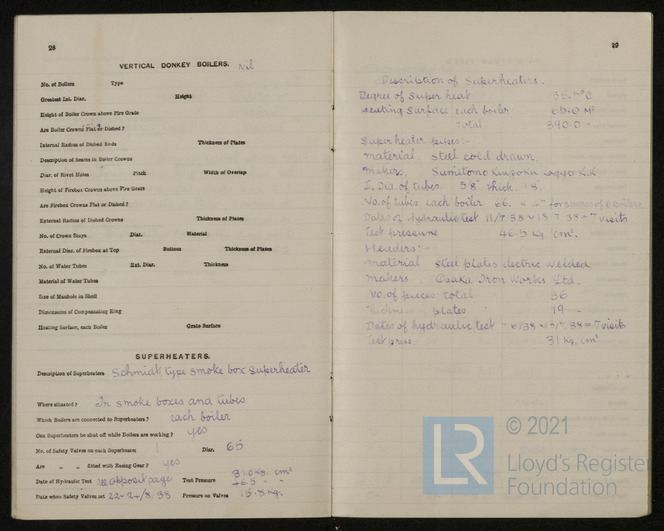 28
VERTICAL DONKEY BOILERS. Nil
No. of Boilers Type
Greatest Int. Diar. Height
Height of Boiler Crown above Fire Grate
Are Boiler Crowns Flat or Dished ?
Internal Radius of Dished Ends Thickness of Plates
Description of Seams in Boiler Crowns
Diar. of Rivet Holes Pitch Width of Overlap
Height of Firebox Crowns above Fire Grate
Are Firebox Crowns Flat or Dished ?
External Radius of Dished Crowns Thickness of Plates
No. of Crown Stays Diar. Material
External Diar. of Firebox at Top Bottom Thickness of Plates
No. of Water Tubes Ext. Diar. Thickness
Material of Water Tubes
Size of Manhole in Shell
Dimensions of Compensating Ring
Heating Surface, each Boiler Grate Surface
SUPERHEATERS.
Description of Superheaters Schmidt type smoke box superheater
Where situated ? In smoke boxes and tubes
Which Boilers are connected to Superheaters ? each boiler
Can Superheaters be shut off while Boilers are working ? yes
No. of Safety Valves on each Superheater Diar. 65
Are " " fitted with Easing Gear ? yes
Date of Hydraulic Test opposit page Test Pressure cm²
Date when Safety Valves set 22-24/8.38 Pressure on Valves 15.8 kg.
29
Description of Superheaters.
Degree of Super heat
Heating Surface each boiler 65.0 M²
Total 390.0 "
Super heater pipes:-
material steel cold drawn
makers. Sumitomo Kinzoku Kogyo K.K
I. Dia. of tubes thick
No. of tubes each boiler 66.
Dates of Hydraulic test 7 visits
Test pressure 46.5 Kg/cm².
Headers:-
material steel plates electric welded
makers. Osaka Iron Works Ltd.
No. of pieces total 36
Thickness plates 19
Dates of hydraulic test 7 visits
Test press. 31 Kg/cm²
© 2021
LR
Lloyd's Register
Foundation